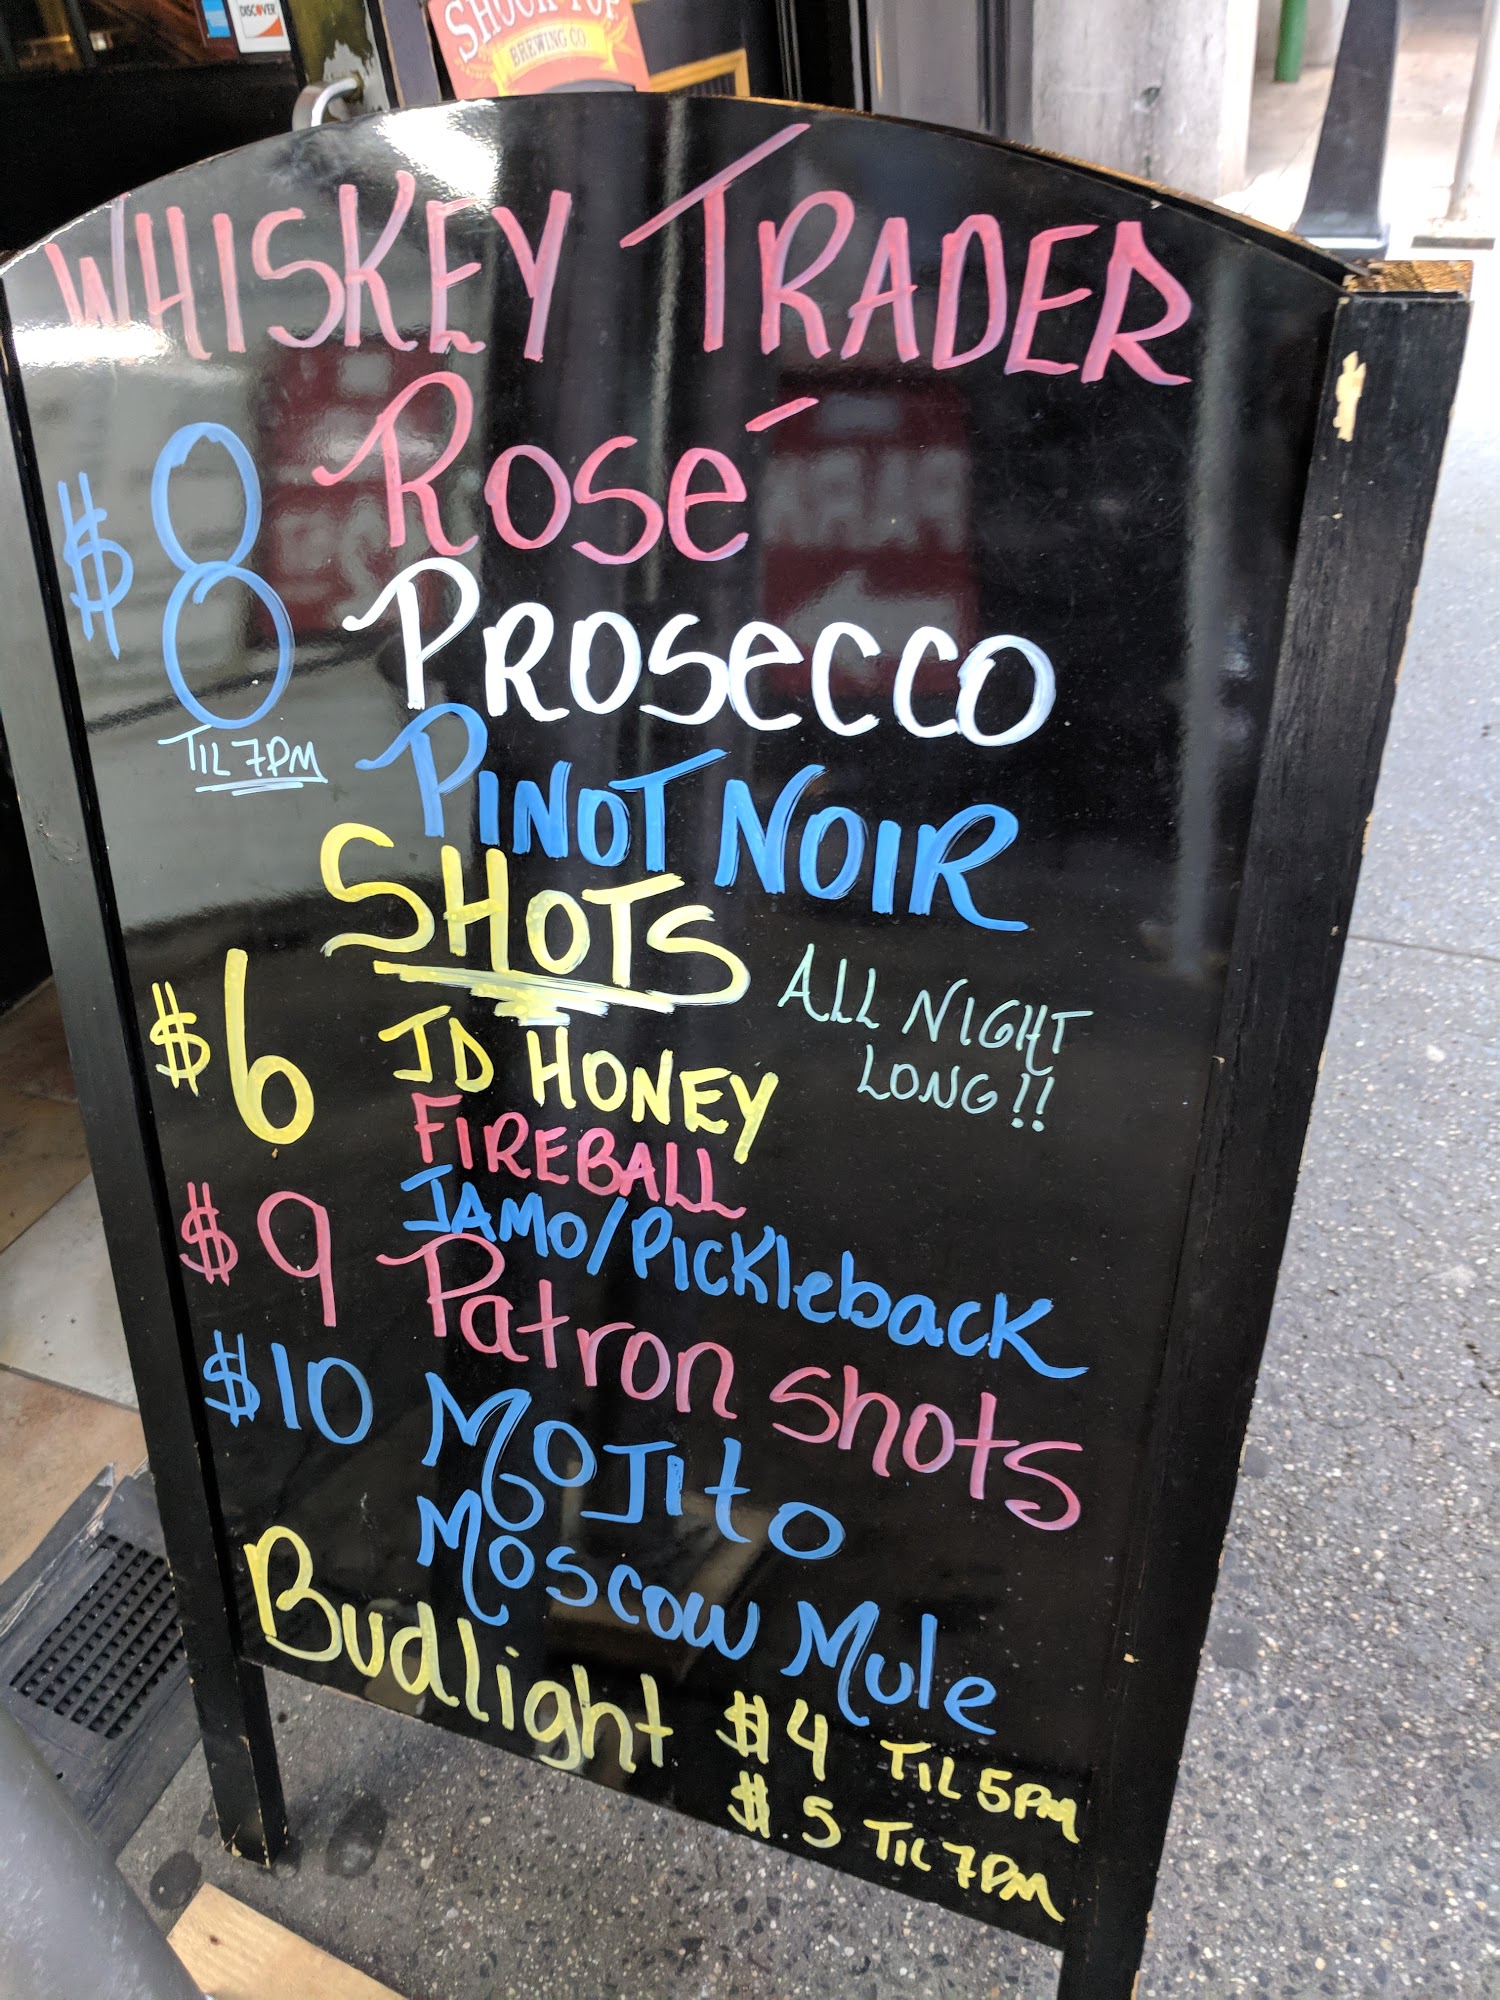 DISCOVER
SHOCK TOP
BREWING CO.
WHISKEY TRADER
$8 ROSÉ
PROSECCO
TIL 7PM
PINOT NOIR
SHOTS
ALL NIGHT
LONG!!
$6 JD HONEY
FIREBALL
JAMO/PICKleback
$9 Patron shots
$10 MOJito
Moscow Mule
Budlight $4 TIL 5PM
$5 TIL 7PM